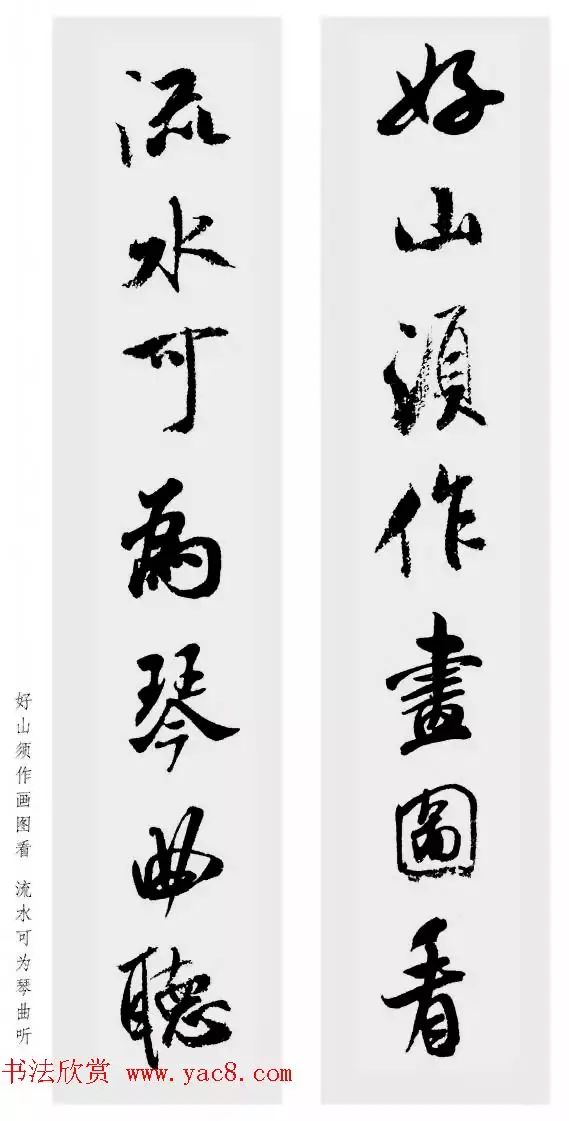 好山須作畫圖看
流水可為琴曲聽
好山须作画图看 流水可为琴曲听
书法欣赏 www.yac8.com